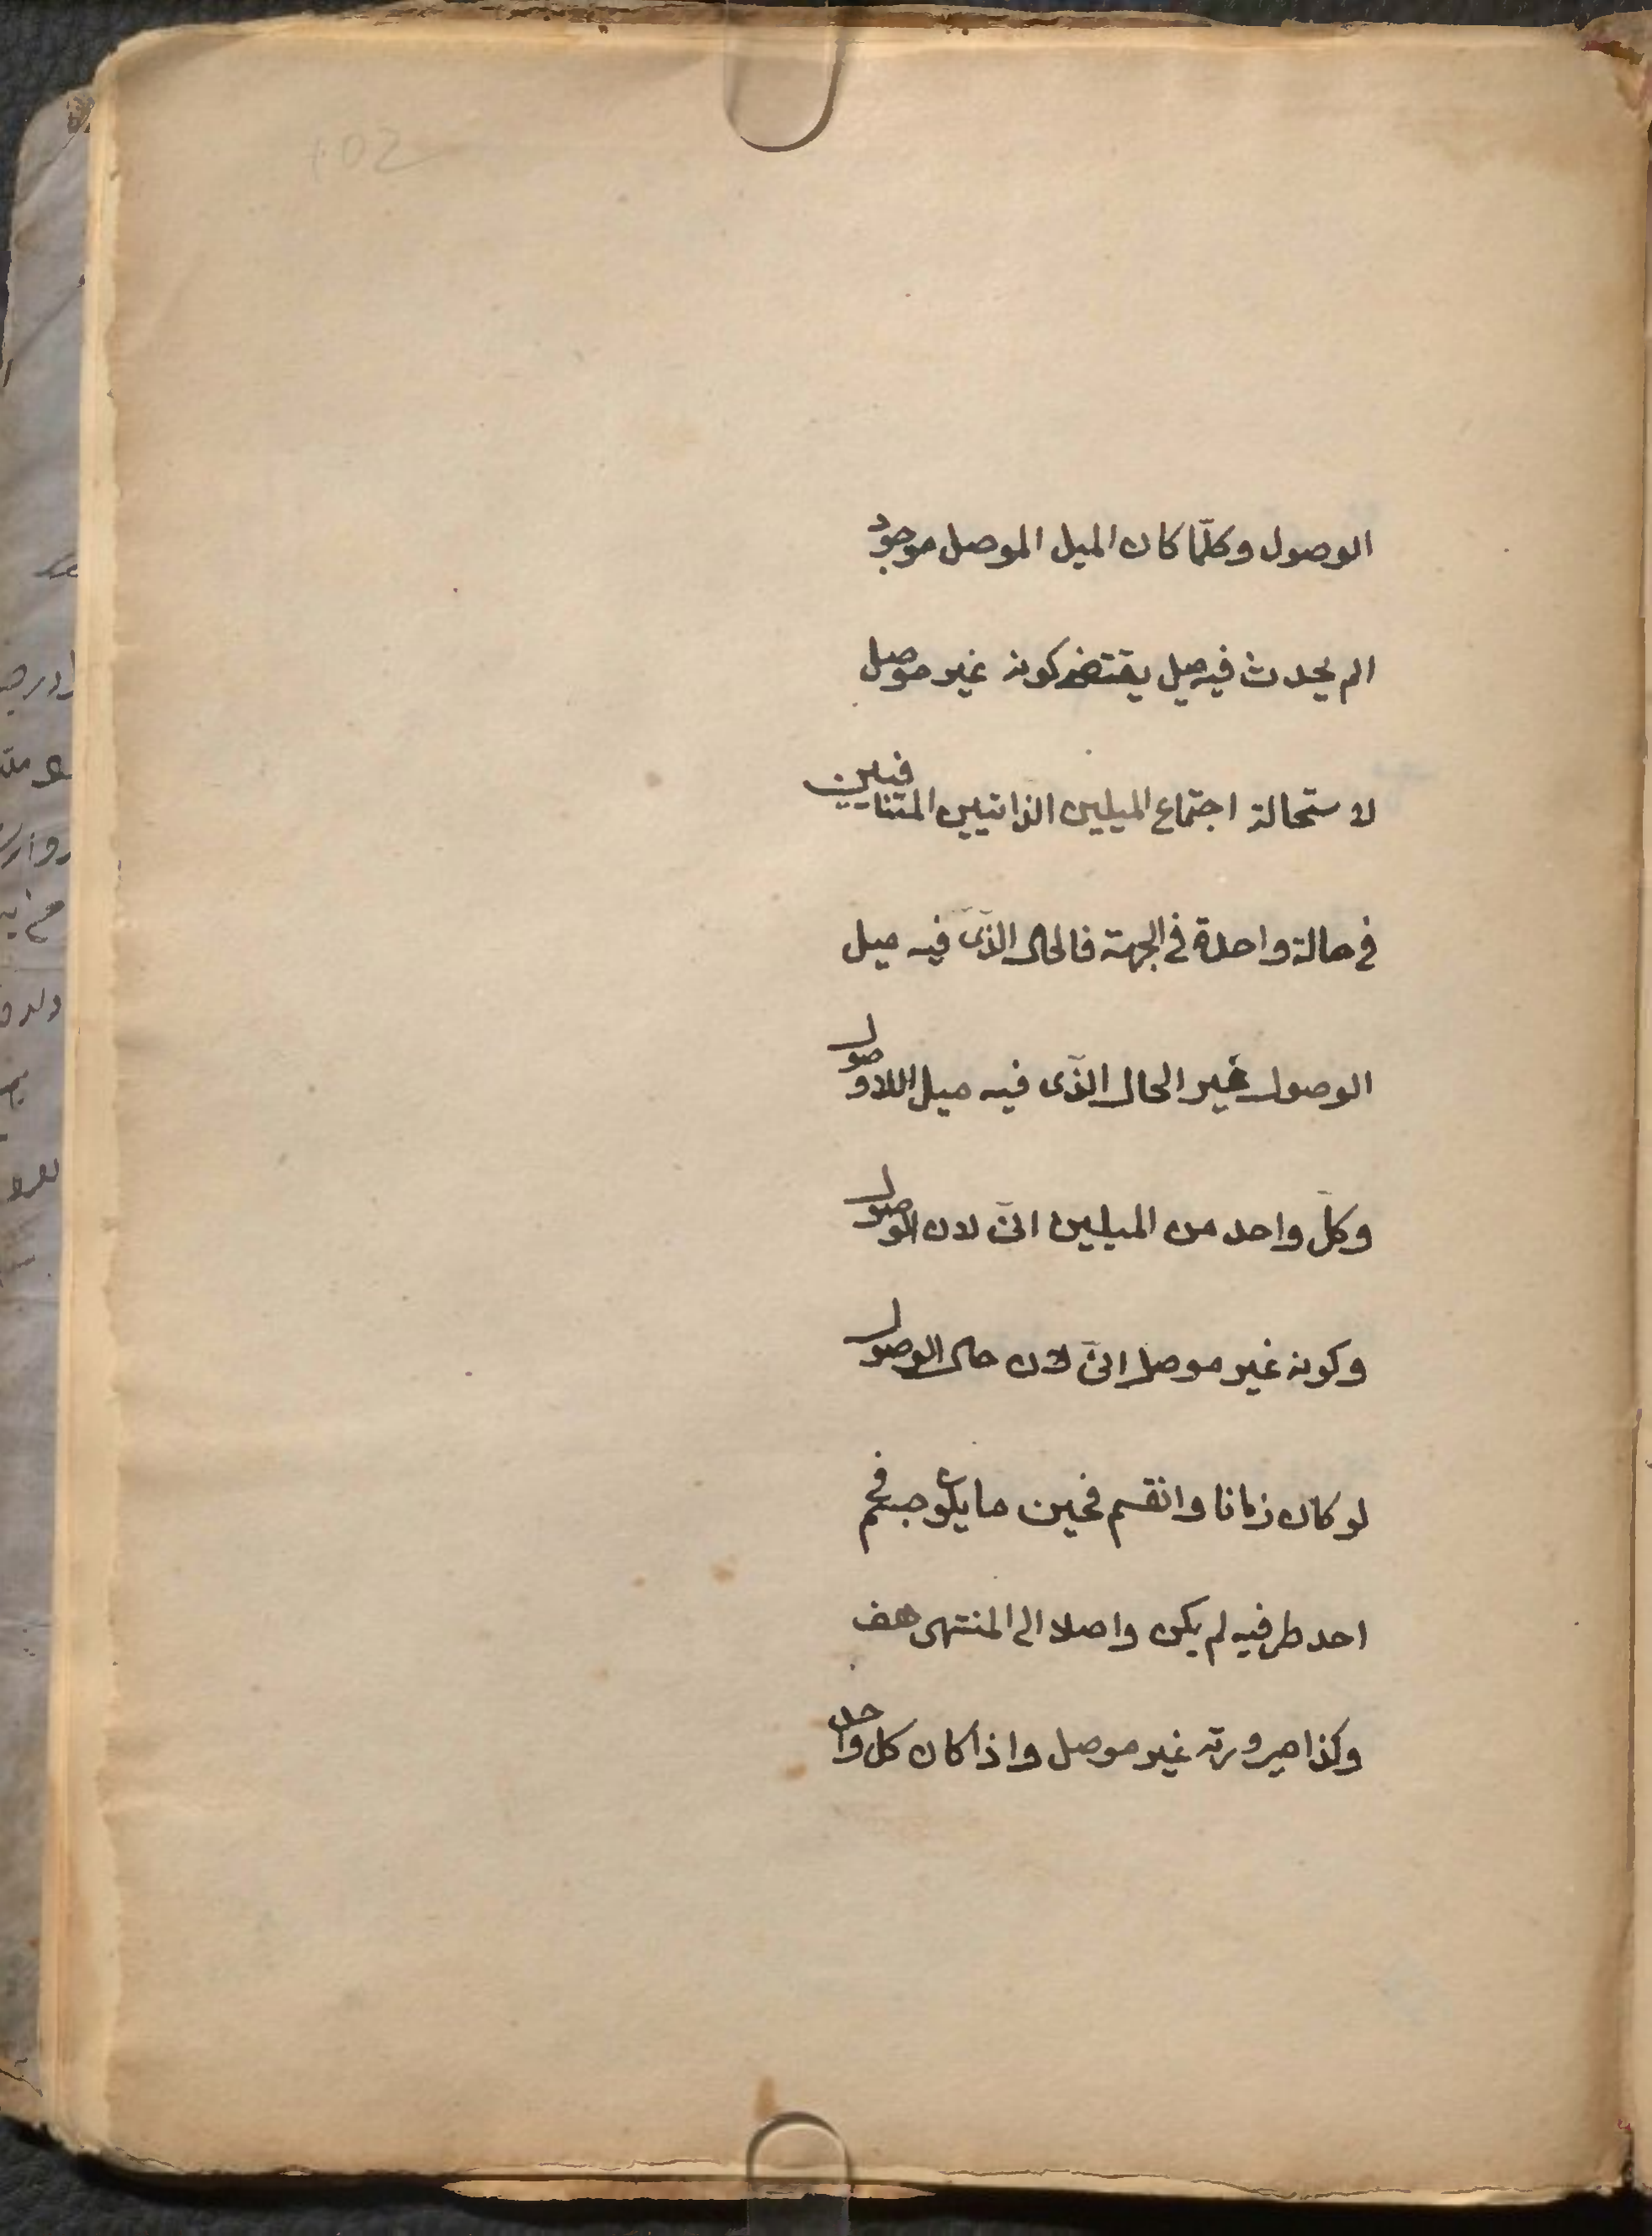 102
الوصول وكلّما كان الميل الموصل موجود
الم يحدث فيه ميل يقتضى كونه غير موصل
لاستحالة اجتماع الميلين الذاتيين المتنافيين
فى حالة واحدة فى الجهة فالحال الذى فيه ميل
الوصول غير الحال الذى فيه ميل اللاوصول
وكلّ واحد من الميلين انىّ لان الوصول
وكونه غير موصل انىّ لان حال الوصول
لو كان زمانا وانقسم فحين ما يكو جسم فى
احد طرفيه لم يكن واصلا الى المنتهى هف
وكذا صيرورته غير موصل واذا كان كل واحد